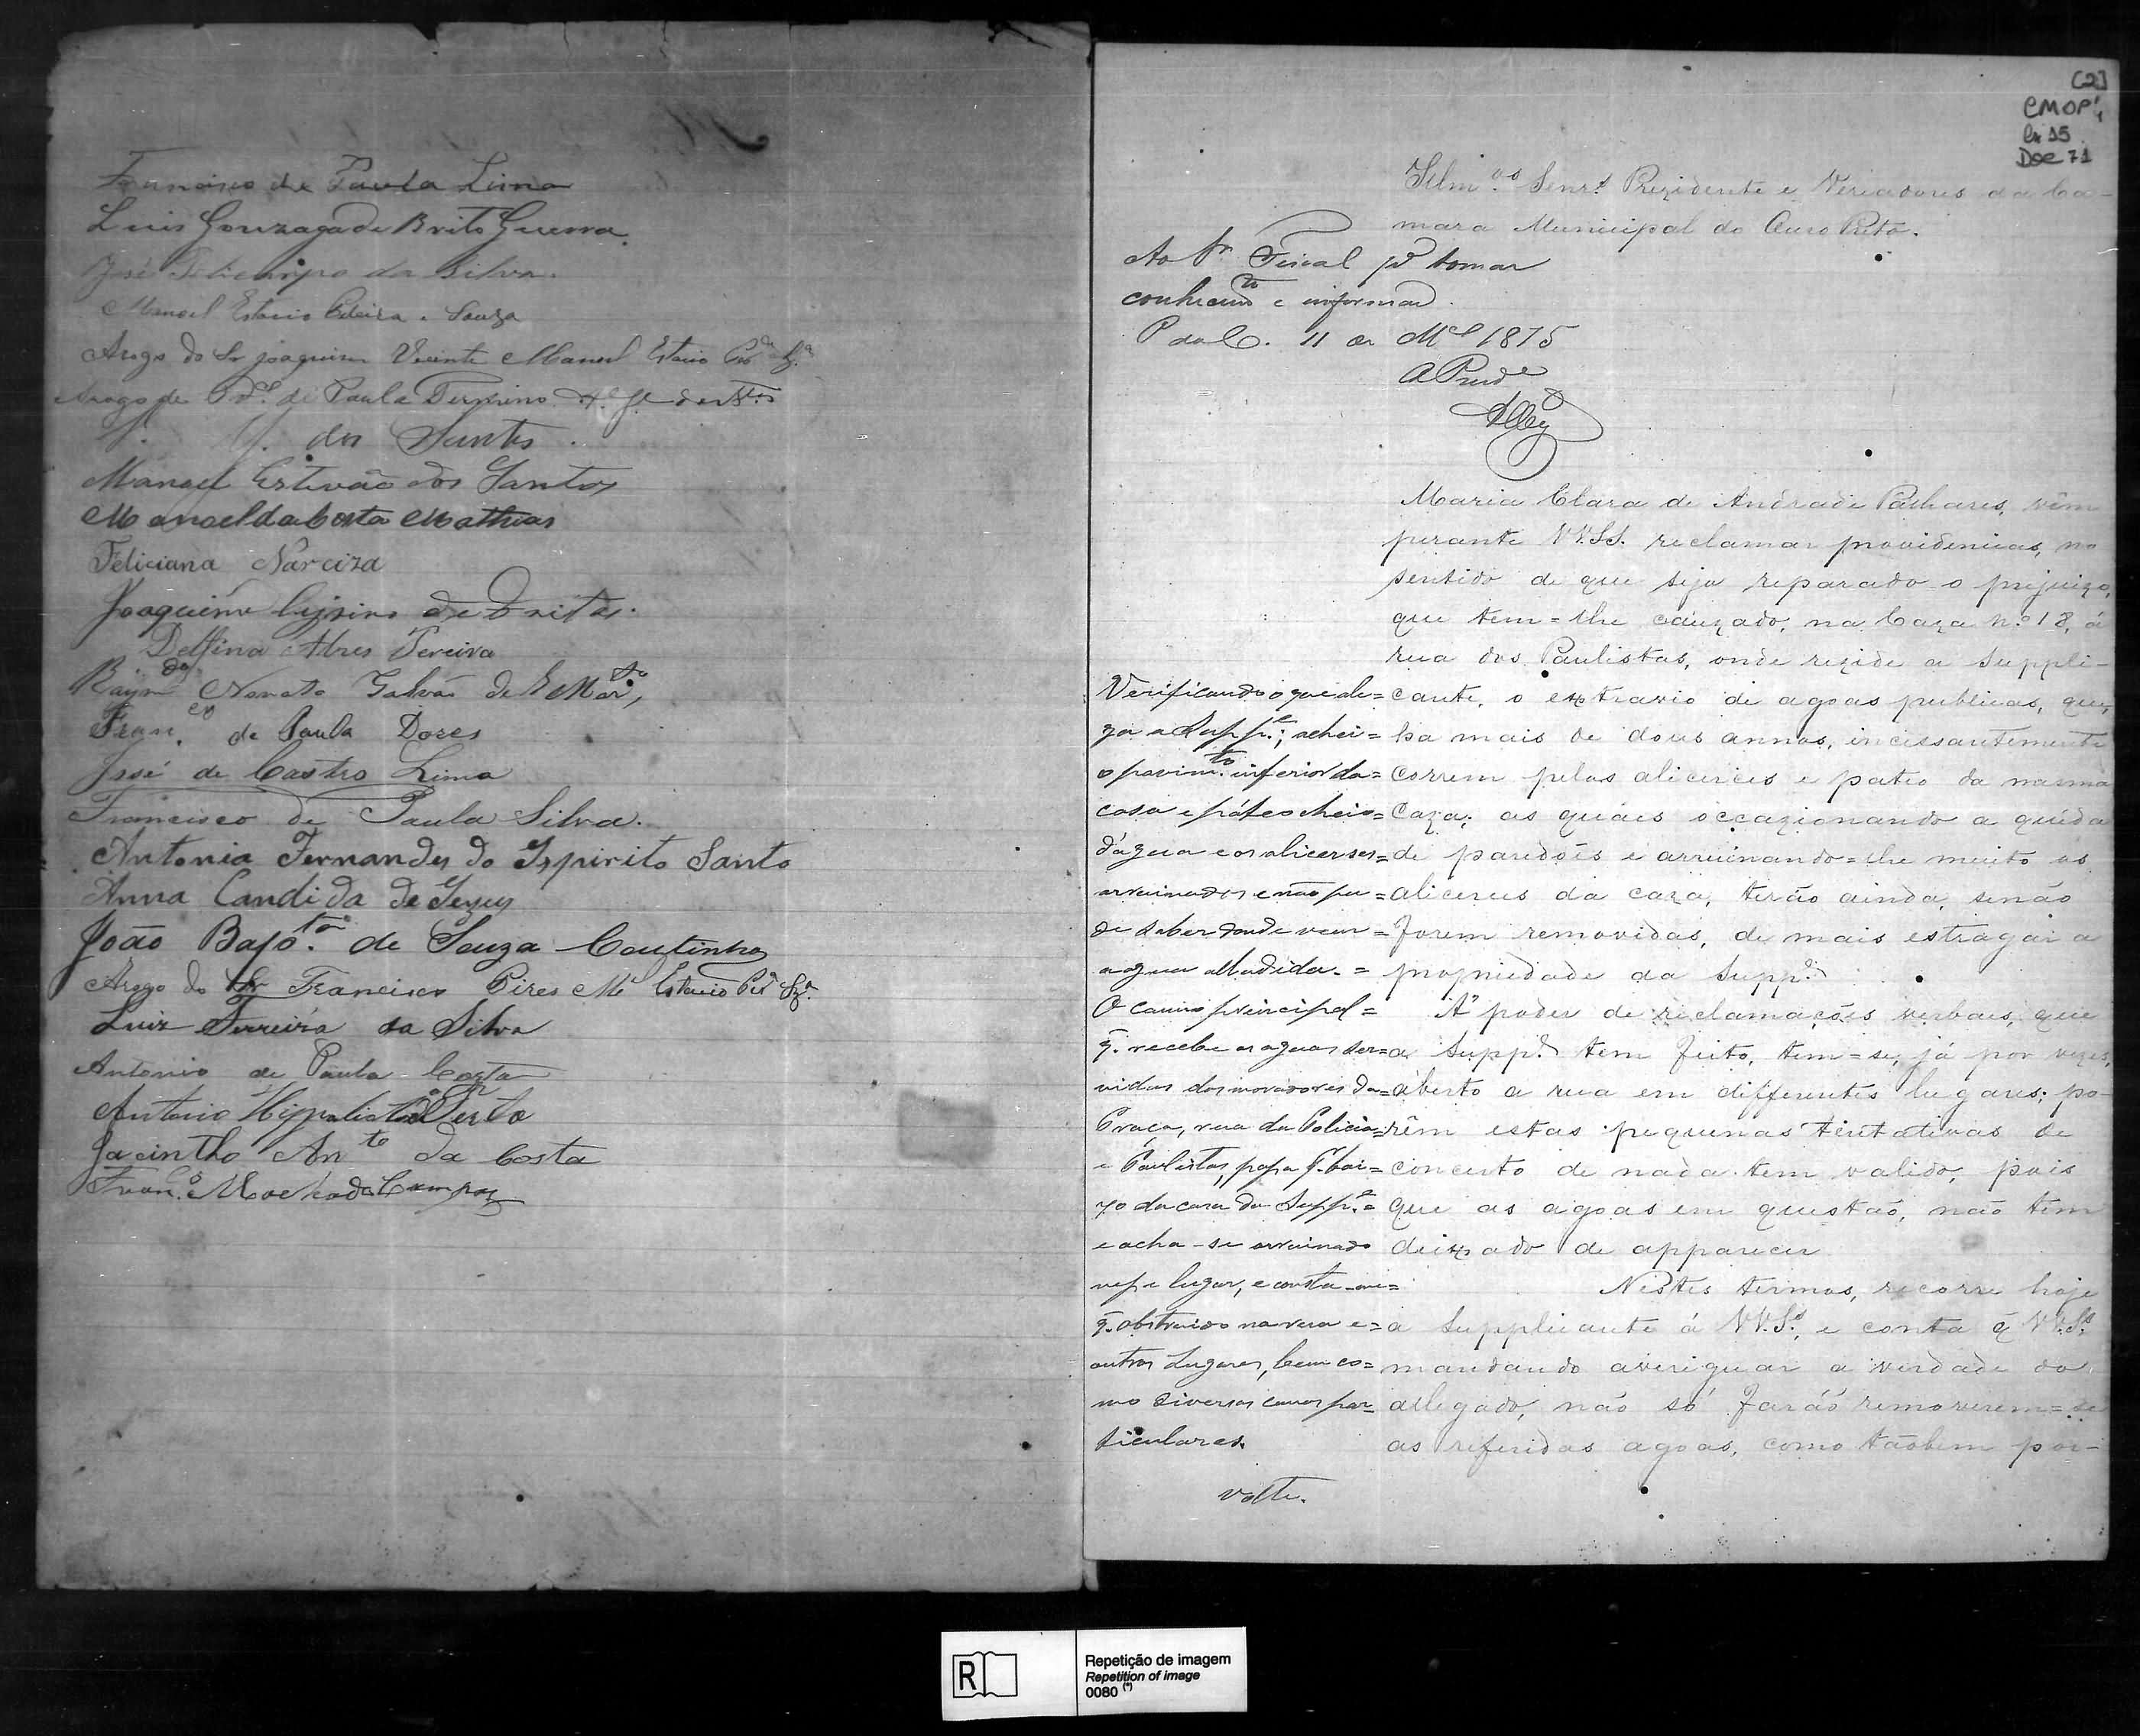 Francisco de Paula Lima
Luis Gonzaga de Brito Guerra
José Policarpo da Silva.
Manoel Estacio Souza
Arogo do Sr joaquim Vicente Manoel Estacio
Arogo de de Paula
dos Santos
Manoel Estevão dos Santos
Manoel da Costa Mathias
Feliciana Narciza
Joaquim de Freitas.
Delfina Alves Pereira
Raym.do Nonato Galvão de
Fran.co de Paula Dores
José de Castro Lima
Francisco de Paula Silva.
Antonia Fernandes do Espirito Santo
Anna Candida de Jezus
João Bap.ta de Souza Coutinho
Arogo do Sr Francisco Pires M.el Estacio
Luiz Ferreira da Silva
Antonio de Paula Costa
Antonio Hippolito
Jacintho An.to da Costa
Fran.co Machado Campos
[2]
CMOP
Cx 15
Doc 71
Illm.os Senr.s Prezidente e Vereadores da Ca-
mara Municipal do Ouro Preto.
Ao Sr Fiscal p.a tomar
conhecim.to e informar.
P da C. 11 de M.co 1875
Maria Clara de Andrade Palhares, vêm
perante VV.SS. reclamar providencias, no
sentido de que seja reparado o prejuizo,
que tem=lhe cauzado, na Caza N.º 18, á
rua dos Paulistas, onde rezide a Suppli-
cante, o extravio de agoas publicas, que,
ha mais de dous annos, incessantemente
correm pelos alicerces e pateo da mesma
Caza; as quáes occazionando a quéda
de paredões e arruinando=lhe muito os
alicerces da caza, terão ainda, senão
forem removidas, de mais estragar a
propriedade da Supp.e
A' poder de reclamações verbaes, que
a Supp.e tem feito, tem=se, já por vezes,
aberto a rua em differentes lugares; po-
rêm estas pequenas tentativas de
concerto de nada tem valido, pois
que as agoas em questão, não têm
deixado de apparecer
Nestes termos, recorre hoje
a Supplicante á VV.SS., e conta q̃ VV.SS.
mandando averiguar a verdade do
allegado, não só farão removerem=se
as referidas agoas, como tãobem por-
Verificando o que ale=
ga a Supp.e; achei=
o pavim.to inferior da=
casa e páteo cheio=
d'agua e os alicerses=
arruinados e não pu=
de saber donde vem=
agua alludida.=
O canno principal=
q. recebe as aguas ser=
vidas dos moradores da=
Praça, rua da Policia=
e Paulistas, passa p. bai=
xo da casa da Supp.e=
e acha-se arruinado
nesse lugar, e consta-me=
q. obstruido na rua e=
outros Lugares, bem co=
mo diversos canos par=
ticulares.
volte.
R
Repetição de imagem
Repetition of image
0080 (*)